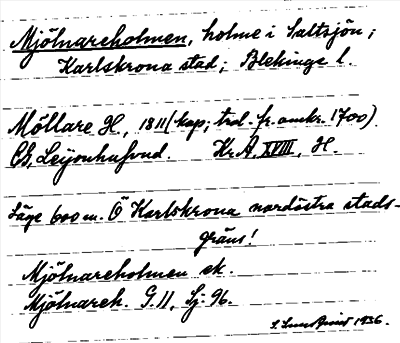 Mjölnareholmen, holme i Saltsjön;
Karlskrona stad; Blekinge l.
Möllare H., 1811 (kop; trol. fr. omkr. 1700).
Leijonhufvud. Kr.A. XVIII, H.
Läge 600 m. Ö Karlskrona nordöstra stads-
gräns!
Mjölnareholmen ek.
Mjölnareh. G. 11, Sj. 96.
1936.